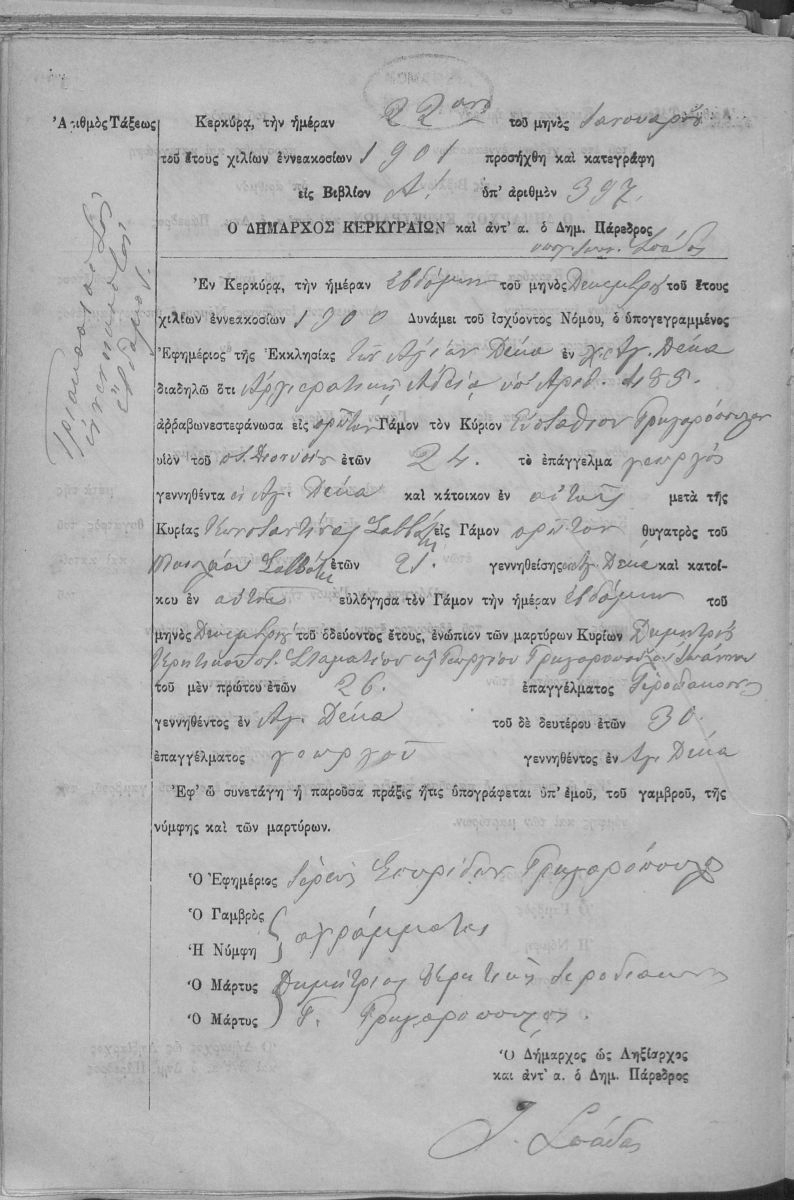 Ἀριθμὸς Τάξεως
Τριακοστὸς
ἐνενηκοστὸς
ἕβδομος.
Κερκύρᾳ, τὴν ἡμέραν 22αν τοῦ μηνὸς Ἰανουαρίου
τοῦ ἔτους χιλίων ἐννεακοσίων 1901 προσήχθη καὶ κατεγράφη
εἰς Βιβλίον Α! ὑπ' ἀριθμὸν 397.
Ο ΔΗΜΑΡΧΟΣ ΚΕΡΚΥΡΑΙΩΝ καὶ ἀντ' α. ὁ Δημ. Πάρεδρος
Σπάδας
Ἐν Κερκύρᾳ, τὴν ἡμέραν ἑβδόμην τοῦ μηνὸς Δεκεμβρίου τοῦ ἔτους
χιλίων ἐννεακοσίων 1900 Δυνάμει τοῦ ἰσχύοντος Νόμου, ὁ ὑπογεγραμμένος
Ἐφημέριος τῆς Ἐκκλησίας τῶν Ἁγίων Δέκα ἐν Ἁγ. Δέκα
διαδηλῶ ὅτι Ἀρχιερατικῇ Ἀδείᾳ ὑπ' Ἀριθ. 485.
ἀρραβωνεστεφάνωσα εἰς πρῶτον Γάμον τὸν Κύριον Εὐστάθιον Γρηγορόπουλον
υἱὸν τοῦ π. Διονυσίου ἐτῶν 24. τὸ ἐπάγγελμα γεωργὸς
γεννηθέντα ἐν Ἁγ. Δέκα καὶ κάτοικον ἐν αὐτοῖς μετὰ τῆς
Κυρίας Κωνσταντίνας Σαββάνη εἰς Γάμον πρῶτον θυγατρὸς τοῦ
Σαββάνη ἐτῶν 21. γεννηθείσης ἐν Ἁγ. Δέκα καὶ κατοί-
κου ἐν αὐτοῖς εὐλόγησα τὸν Γάμον τὴν ἡμέραν ἑβδόμην τοῦ
μηνὸς Δεκεμβρίου τοῦ ὁδεύοντος ἔτους, ἐνώπιον τῶν μαρτύρων Κυρίων Δημητρίου
Κρητικοῦ π. Σταματίου καὶ Γεωργίου Γρηγοροπούλου Ἰωάννου
τοῦ μὲν πρώτου ἐτῶν 26. ἐπαγγέλματος Ἱεροδιάκονος
γεννηθέντος ἐν Ἁγ. Δέκα τοῦ δὲ δευτέρου ἐτῶν 30.
ἐπαγγέλματος γεωργοῦ γεννηθέντος ἐν Ἁγ. Δέκα
Ἐφ' ᾧ συνετάγη ἡ παροῦσα πρᾶξις ἥτις ὑπογράφεται ὑπ' ἐμοῦ, τοῦ γαμβροῦ, τῆς
νύμφης καὶ τῶν μαρτύρων.
Ὁ Ἐφημέριος Ἱερεὺς Σπυρίδων Γρηγορόπουλος
Ὁ Γαμβρὸς
ἀγράμματοι
Ἡ Νύμφη
Ὁ Μάρτυς Δημήτριος Κρητικὸς Ἱεροδιάκονος
Ὁ Μάρτυς Γ. Γρηγορόπουλος.
Ὁ Δήμαρχος ὡς Ληξίαρχος
καὶ ἀντ' α. ὁ Δημ. Πάρεδρος
Ι. Σπάδας